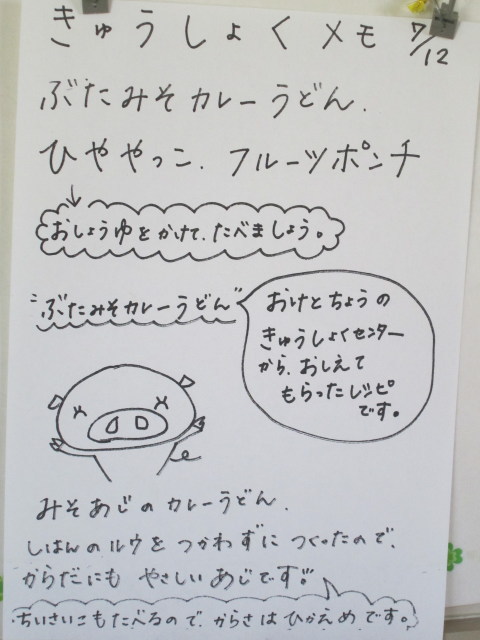 きゅうしょくメモ 7/12
ぶたみそカレーうどん.
ひややっこ. フルーツポンチ
おしょうゆをかけて、たべましょう。
"ぶたみそカレーうどん"
おけとちょうの
きゅうしょくセンター
から、おしえて
もらったレシピ
です。
みそあじのカレーうどん.
しはんのルウをつかわずにつくったので、
からだにもやさしいあじです!!
ちいさいこもたべるので、からさはひかえめです。